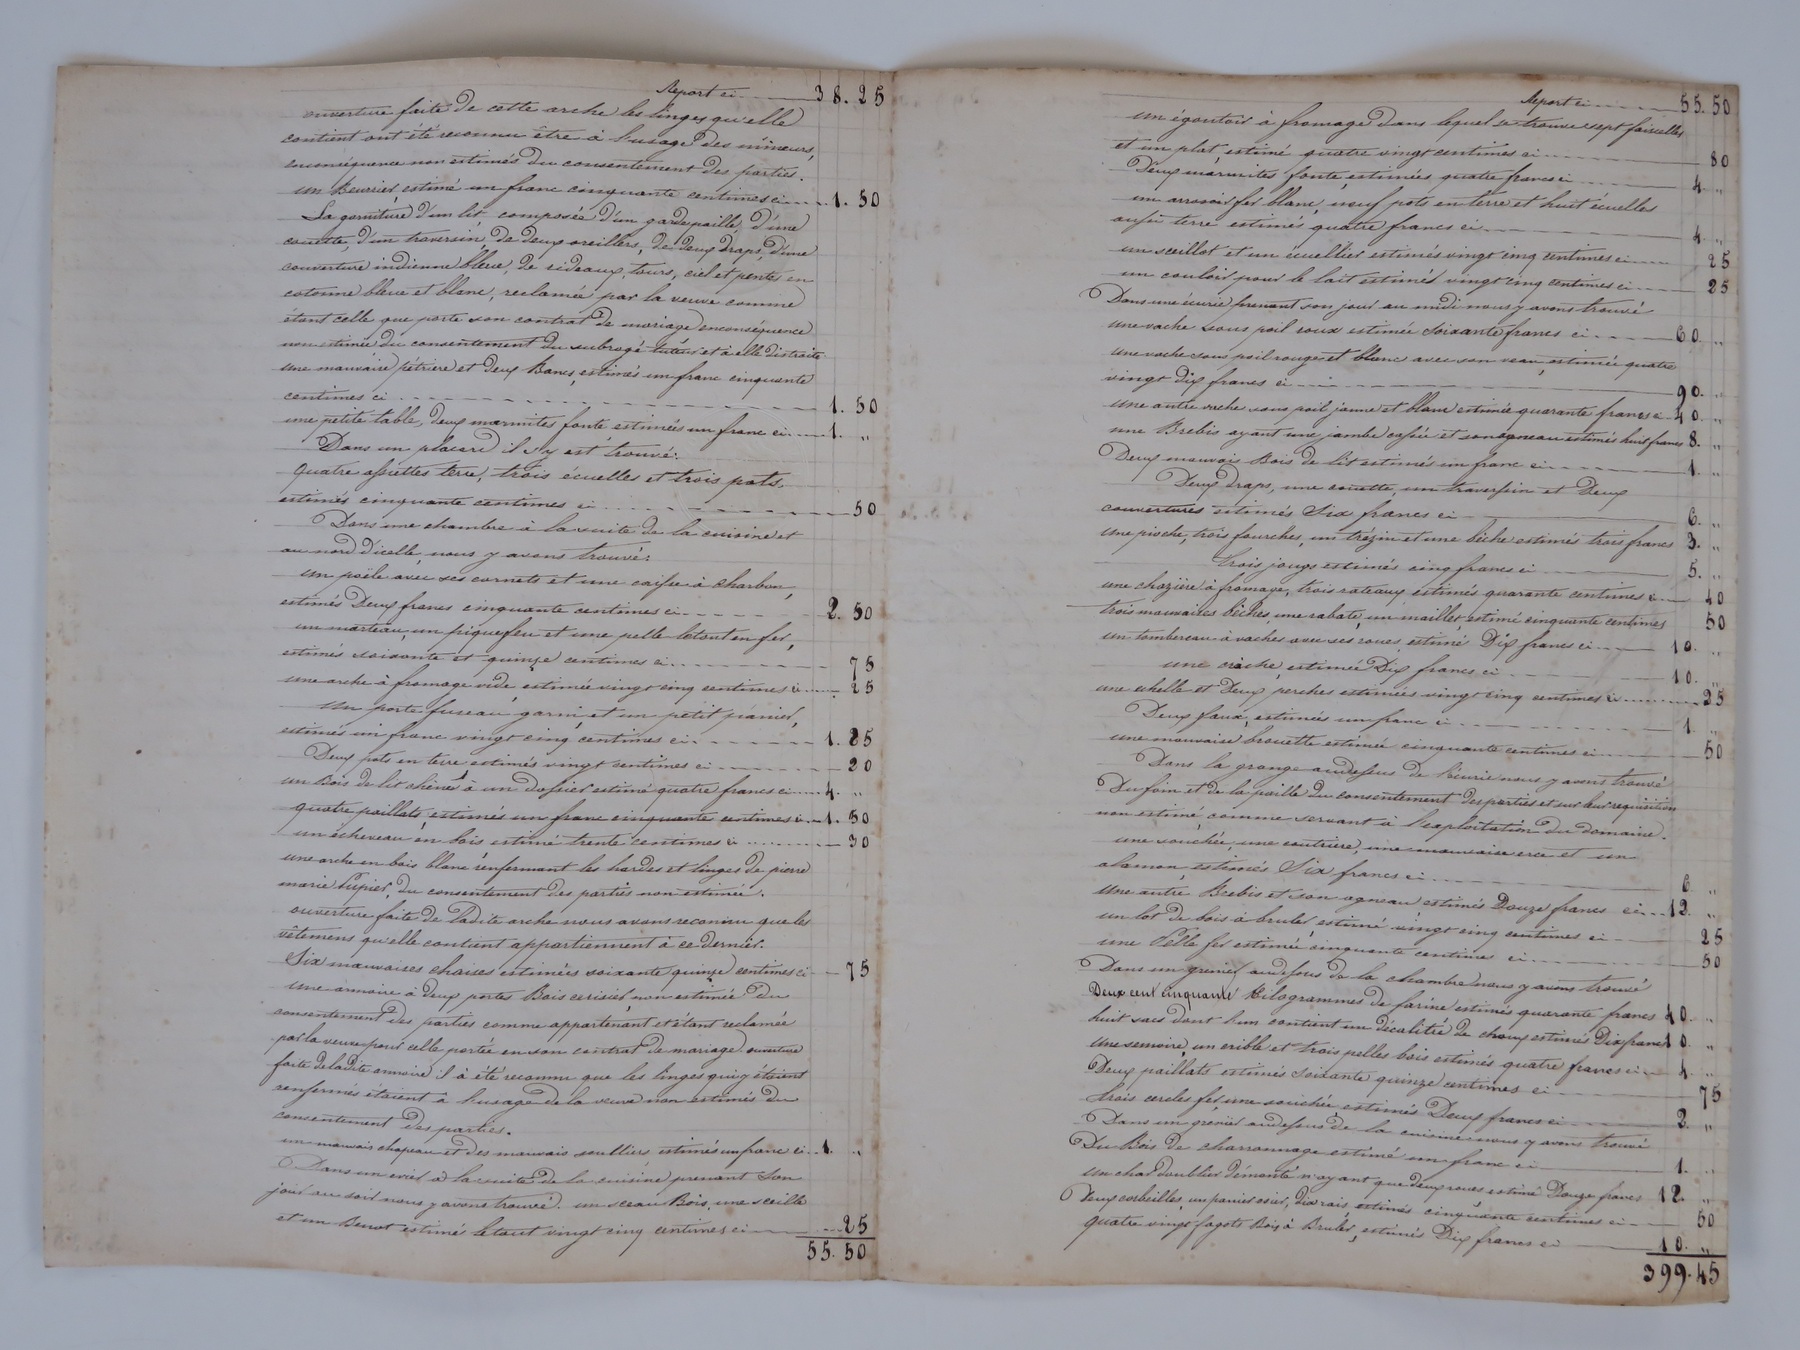 Report ci 38.25
ouverture faite de cette arche les linges qu'elle
contient ont été reconnu être à l'usage des mineurs,
enconséquence non estimés du consentement des parties.
un Beurrier estimé un franc cinquante centimes ci 1.50
La garniture d'un lit, composée d'un gardepaille, d'une
couette, d'un traversin, de deux oreillers, de deux draps, d'une
couverture indienne bleue, de rideaux, tours, ciel et pentes en
cotonne bleue et blanc, reclamée par la veuve comme
étant celle que porte son contrat de mariage enconséquence
non estimée du consentement du subrogé tuteur et à elle distraite
une mauvaise pétrière et deux Bancs, estimés un franc cinquante
centimes ci 1.50
une petite table, deux marmites fonte estimées un franc ci 1. "
Dans un placard il s'y est trouvé:
quatre assiettes terre, trois écuelles et trois pots
estimés cinquante centimes ci 50
Dans une chambre à la suite de la cuisine et
au nord d'icelle nous y avons trouvé:
un poële avec ses cornets et une caisse à charbon,
estimés Deux francs cinquante centimes ci 2.50
un marteau, un piquefeu et une pelle letout en fer,
estimés soixante et quinze centimes ci 75
une arche à fromage vide, estimée vingt cinq centimes ci 25
un porte fuseau garni et un petit panier,
estimés un franc vingt cinq centimes ci 1.25
Deux pots en terre estimés vingt centimes ci 20
un Bois de lit chêne à un dossier estimé quatre francs ci 4. "
quatre paillats estimés un franc cinquante centimes ci 1.50
un écheveau en bois estimé trente centimes ci 30
une arche en bois blanc renfermant les hardes et linges de pierre
marie Pupier, du consentement des parties non estimée.
ouverture faite de ladite arche nous avons reconnu que les
vêtemens qu'elle contient appartiennent à ce dernier.
Six mauvaises chaises estimées soixante quinze centimes ci 75
une armoire à deux portes Bois cerisier non estimée du
consentement des parties comme appartenant et étant reclamée
par la veuve pour celle portée en son contrat de mariage ouverture
faite deladite armoire il a été reconnu que les linges qui y étaient
renfermés étaient à l'usage de la veuve non estimés du
consentement des parties.
un mauvais chapeau et des mauvais soulliers estimés un franc ci 1. "
Dans un évier à la suite de la cuisine prenant son
jour au soir nous y avons trouvé un seau Bois, une seille
et un Benot estimés letout vingt cinq centimes ci 25
55.50
Report ci 55.50
un égoutoir à fromage dans lequel se trouve sept faisselles
et un plat, estimé quatre vingt centimes ci 80
Deux marmites fonte, estimées quatre francs ci 4 "
un arrosoir fer blanc, neuf pots en terre et huit écuelles
aussi terre estimés quatre francs ci 4. "
un seillot et un écuellier estimés vingt cinq centimes ci 25
un couloir pour le lait estimés vingt cinq centimes ci 25
Dans une écurie prenant son jour au midi nous y avons trouvé
une vache sous poil roux estimée Soixante francs ci 60. "
une vache sous poil rouge et blanc avec son veau, estimée quatre
vingt dix francs ci 90. "
une autre vache sous poil jaune et blanc estimée quarante francs ci 40. "
une Brebis ayant une jambe cassée et son agneau estimés huit francs 8. "
Deux mauvais Bois de lit estimés un franc ci 1. "
Deux draps, une couette, un traversin et deux
couvertures estimés Six francs ci 6. "
une pioche, trois fourches, un trézin et une bêche estimés trois francs 3. "
trois jougs estimés cinq francs ci 5. "
une chazière à fromage, trois rateaux estimés quarante centimes ci 40
trois mauvaises bêches, une rabate, un maillet, estimé cinquante centimes 50
un tombereau à vaches avec ses roues, estimé Dix francs ci 10. "
une crèche, estimée Dix francs ci 10. "
une echelle et Deux perches estimées vingt cinq centimes ci 25
Deux faux, estimées un franc ci 1. "
une mauvaise brouette estimée cinquante centimes ci 50
Dans la grange audessus de l'écurie nous y avons trouvé
Du foin et de la paille du consentement des parties et sur leur requisition
non estimé comme servant à l'exploitation du domaine.
une souchée, une coutrière, une mauvaise et un
alamon, estimés Six francs ci 6 "
une autre Brebis et son agneau estimés Douze francs ci 12. "
un lot de bois à bruler estimé vingt cinq centimes ci 25
une Pelle fer estimé cinquante centimes ci 50
Dans un grenier audessus de la chambre nous y avons trouvé
Deux cent cinquante Kilogrammes de farine estimés quarante francs 40. "
huit sacs dont l'un contient un décalitre de estimés Dix francs 10. "
une semoire, un crible et trois pelles bois estimés quatre francs ci 4. "
Deux paillats estimés soixante quinze centimes ci 75
trois cercles fer, une souchée, estimés Deux francs ci 2. "
Dans un grenier audessus de la cuisine nous y avons trouvé
Du Bois de charronnage estimé un franc ci 1. "
un char doublier démonté n'ayant que deux roues estimé Douze francs 12. "
Deux corbeilles, un panier osier, dix rais, estimés cinquante centimes ci 50
quatre vingt fagots Bois à Bruler, estimés Dix francs ci 10. "
399.45